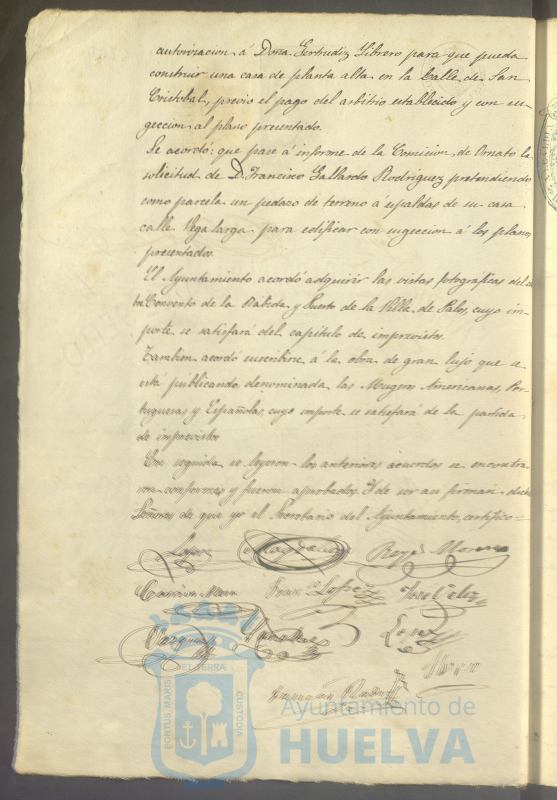 autorizacion á Doña Gertrudiz Librero para que pueda
construir una casa de planta alta en la Calle de San
Cristobal, previo el pago del arbitrio establecido y con su-
gecion al plano presentado.
Se acordó: que pase á informe de la Comision de Ornato la
solicitud de D. Francisco Gallardo Rodriguez pretendiendo
como parcela un pedazo de terreno á espaldas de su casa
calle Vega larga para edificar con sugecion á los planos
presentados.
El Ayuntamiento acordó adquirir las vistas fotográficas del
Convento de la Rabida y Puerto de la Villa de Palos, cuyo im-
porte se satisfará del capitulo de imprevistos.
Tambien acordó suscribirse á la obra de gran lujo que se
está publicando denominada las Mugeres Americanas, Por-
tuguesas y Españolas, cuyo importe se satisfará de la partida
de imprevistos
En seguida se leyeron los anteriores acuerdos se encontra-
ron conformes y fueron aprobados. Y de ser asi firman dichos
Señores de que yo el Secretario del Ayuntamiento, certifico=
Lopez
Reyes Moreno
Franco Lopez José Celiz
Vazquez Lopez
PORTUS MARIS ET TERRÆ CUSTODIA
Ayuntamiento de
HUELVA